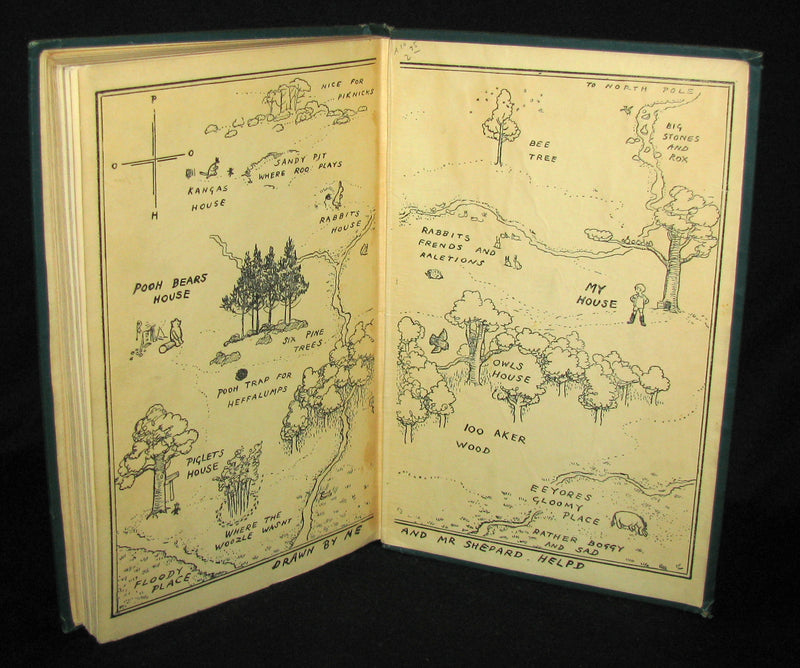 P
O O
H
NICE FOR
PIKNICKS
KANGAS
HOUSE
SANDY PIT
WHERE ROO PLAYS
RABBITS
HOUSE
POOH BEARS
HOUSE
SIX PINE
TREES
POOH TRAP FOR
HEFFALUMPS
PIGLETS
HOUSE
WHERE THE
WOOZLE WASNT
FLOODY
PLACE
DRAWN BY ME
TO NORTH POLE
BEE
TREE
BIG
STONES
AND
ROX
RABBITS
FRENDS AND
RALETIONS
MY
HOUSE
OWLS
HOUSE
100 AKER
WOOD
EEYORES
GLOOMY
PLACE
RATHER BOGGY
AND SAD
AND MR SHEPARD HELPD